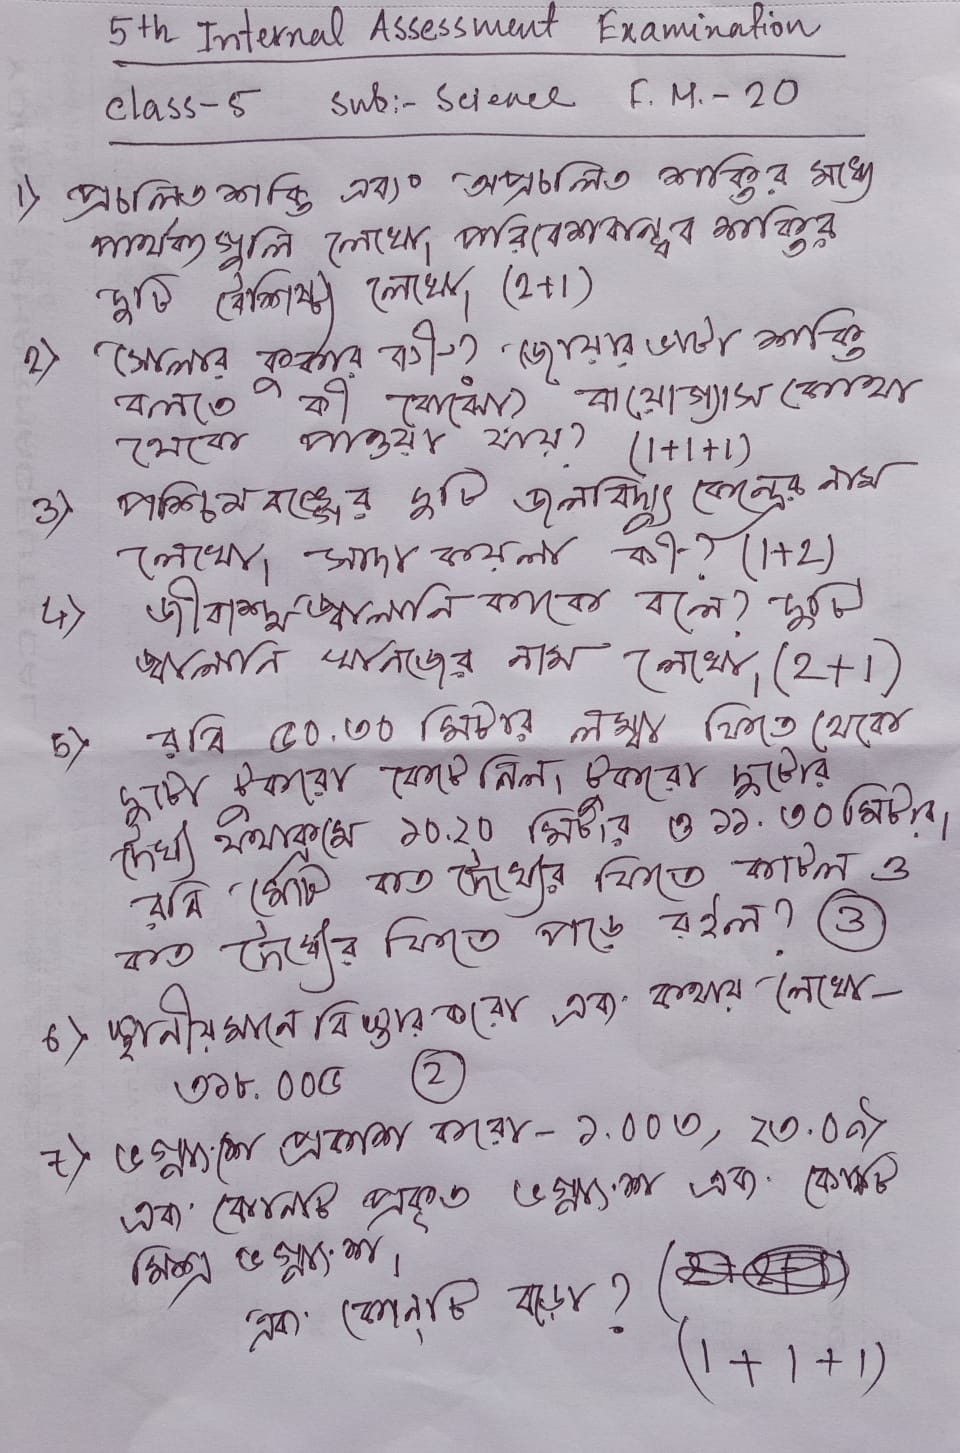 5th Internal Assessment Examination
class-5 sub:- Science F. M. - 20
1) প্রচলিত শক্তি এবং অপ্রচলিত শক্তির মধ্যে
পার্থক্যগুলি লেখো। পরিবেশবান্ধব শক্তির
দুটি বৈশিষ্ট্য লেখো। (2+1)
2) সোলার কুকার কী? জোয়ার ভাটা শক্তি
বলতে কী বোঝো? বায়োগ্যাস কোথা
থেকে পাওয়া যায়? (1+1+1)
3) পশ্চিমবঙ্গের দুটি জলবিদ্যুৎ কেন্দ্রের নাম
লেখো। সাদা কয়লা কী? (1+2)
4) জীবাশ্ম জ্বালানি কাকে বলে? দুটি
জ্বালানি খনিজের নাম লেখো। (2+1)
5) রবি ৫০.৩০ মিটার লম্বা ফিতে থেকে
দুটো টুকরো কেটে নিল। টুকরো দুটোর
দৈর্ঘ্য যথাক্রমে ১০.২০ মিটার ও ১১.৩০ মিটার।
রবি মোট কত দৈর্ঘ্যের ফিতে কাটল ও
কত দৈর্ঘ্যের ফিতে পড়ে রইল? (3)
6) স্থানীয়মানে বিস্তার করো এবং কথায় লেখো-
৩১৮.০০৫ (2)
7) ভগ্নাংশে প্রকাশ করো- ১.০০৩, ২৩.০৯
এবং কোনটি প্রকৃত ভগ্নাংশ এবং কোনটি
মিশ্র ভগ্নাংশ।
এবং কোন্‌টি বড়ো?
(1+1+1)